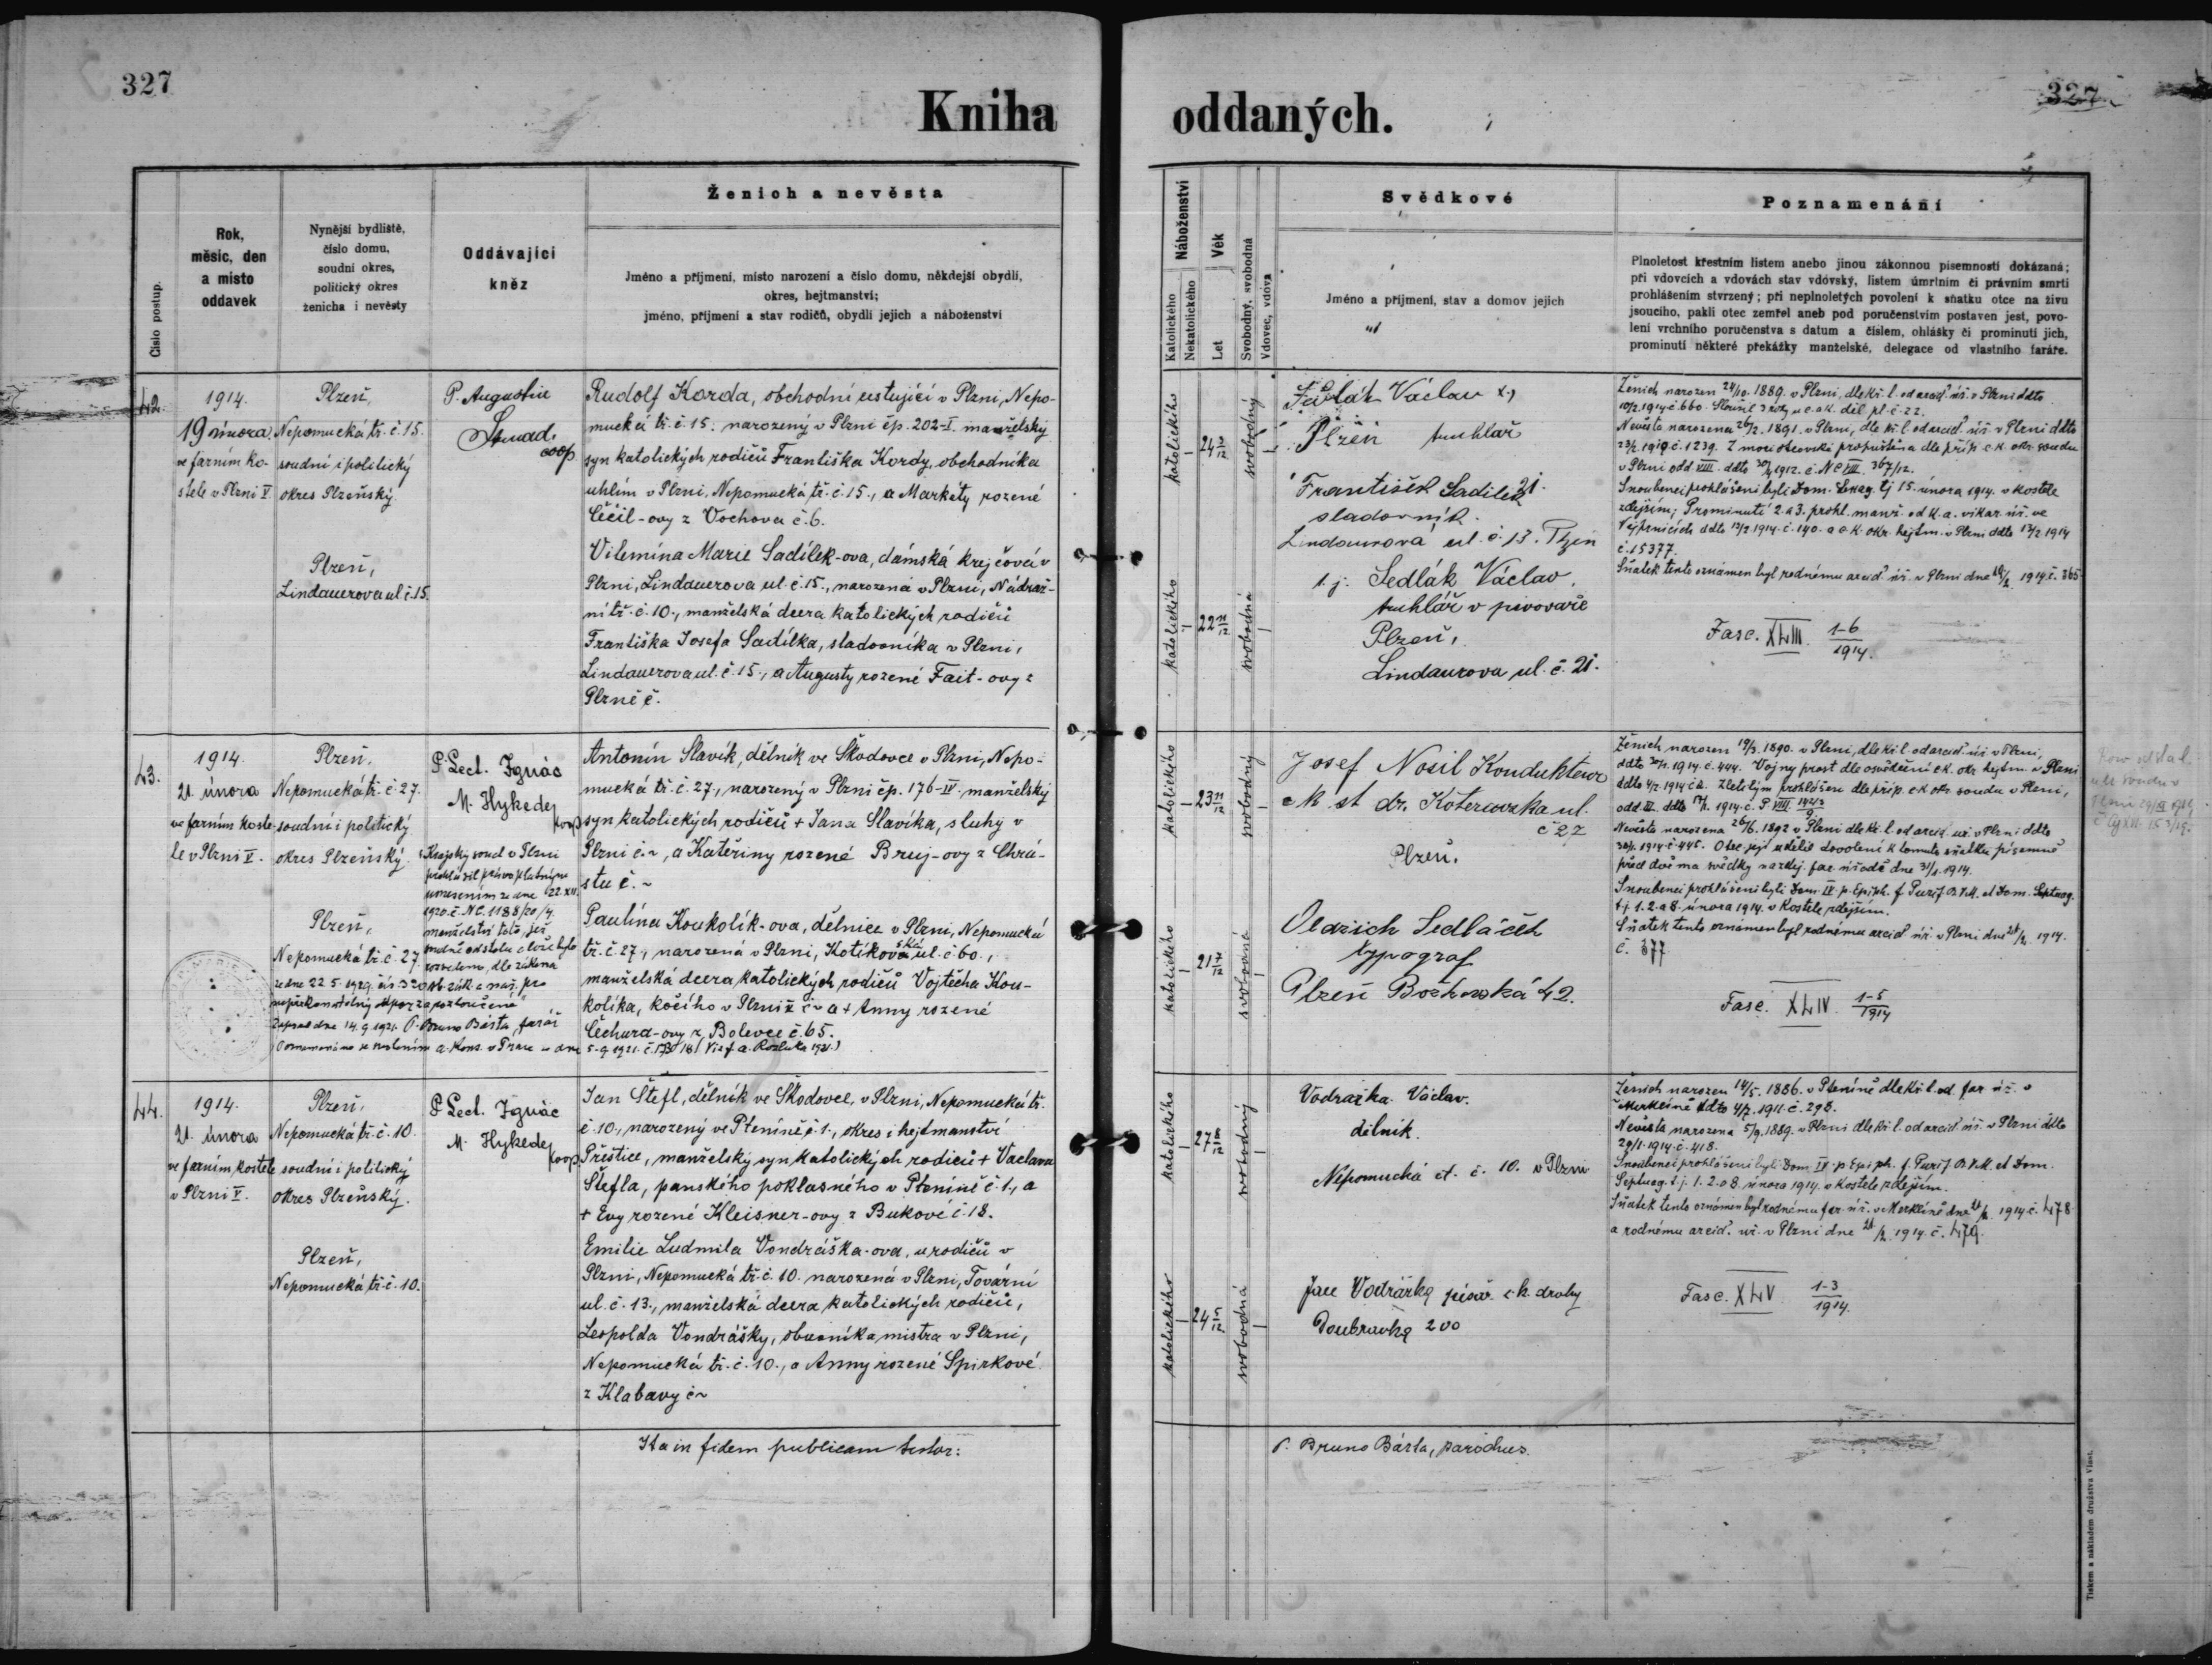 327
327
Kniha oddaných.
Číslo postup.
Rok,
měsíc, den
a místo
oddavek
Nynější bydliště,
číslo domu,
soudní okres,
politický okres
ženicha i nevěsty
Oddávající
kněz
Ženich a nevěsta
Jméno a příjmení, místo narození a číslo domu, někdejší obydlí,
okres, hejtmanství;
jméno, příjmení a stav rodičů, obydlí jejich a náboženství
Náboženství
Katolického
Nekatolického
Věk
Let
Svobodný, svobodná
Vdovec, vdova
Svědkové
Jméno a příjmení, stav a domov jejich
Poznamenání
Plnoletost křestním listem anebo jinou zákonnou písemností dokázaná;
při vdovcích a vdovách stav vdovský, listem úmrtním či právním smrti
prohlášením stvrzený; při neplnoletých povolení k sňatku otce na živu
jsoucího, pakli otec zemřel aneb pod poručenstvím postaven jest, povo-
lení vrchního poručenstva s datum a číslem, ohlášky či prominutí jich,
prominutí některé překážky manželské, delegace od vlastního faráře.
42.
1914.
19 února
ve farním ko-
stele v Plzni V.
Plzeň,
Nepomucká tř. č. 15.
soudní i politický
okres Plzeňský.
Plzeň,
Lindauerova ul. č. 15.
P. Augustin
coop.
Rudolf Korda, obchodní cestující v Plzni, Nepo-
mucká tř. č. 15. narozený v Plzni čp. 202-I. manželský
syn katolických rodičů Františka Kordy, obchodníka
uhlím v Plzni, Nepomucká tř. č. 15., a Markéty rozené
Čéčil-ovy z Vochova č. 6.
Vilemína Marie Sadílek-ova, dámská krejčová v
Plzni, Lindauerova ul. č. 15., narozená v Plzni, Nádraž-
ní tř. č. 10., manželská dcera katolických rodičů
Františka Josefa Sadílka, sladovníka v Plzni,
Lindauerova ul. č. 15., a Augusty rozené Fait-ovy z
Plzně č.
katolického
24 3/12
svobodný
katolického
22 11/12
svobodná
Sedlák Václav x)
Plzeň truhlář
František Sadílek 21.
sladovník.
Lindaurova ul. č. 13. Plzeň
t. j. Sedlák Václav.
truhlář v pivovaře
Plzeň,
Lindaurova ul. č. 21.
Ženich narozen 24/10. 1889. v Plzni, dle kř. l. od arciď. úř. v Plzni ddto
10/2. 1914 č. 660. Sloužil 3 roky u c. a k. děl. pl. č. 22.
Nevěsta narozena 26/2. 1891. v Plzni, dle kř. l. od arciď. úř. v Plzni ddto
23/1. 1912 č. 1239. Z moci otcovské propuštěna dle příp. c. k. okr. soudu
v Plzni odd. VIII. ddto 30/4 1912. č. Nc VIII. 367/12.
Snoubenci prohlášeni byli Dom. Sexag. tj 15. února 1914. v kostele
zdejším; Prominutí 2. a 3. prohl. manž. od k. a. vikar. úř. ve
Vejprnicích ddto 17/2 1914. č. 140. a c. k. okr. hejtm. v Plzni ddto 17/2 1914
č. 15377.
Sňatek tento oznámen byl rodnému arciď. úř. v Plzni dne 1914. č. 365
Fasc. XLIII. 1-6/1914.
43.
1914.
21. února
ve farním koste-
le v Plzni V.
Plzeň,
Nepomucká tř. č. 27.
soudní i politický
okres Plzeňský.
Plzeň,
Nepomucká tř. č. 27.
P. Lect. Ignác
M. Hykedej
koop.
Krajský soud v Plzni
prohlásil právoplatným
usnesením ze dne 22. XII.
1920. č. Nc. 1188/20/4.
manželství toto, jež
soudně od stolu a lože bylo
rozvedeno, dle zákona
ze dne 22. 5. 1919. čís. 320 sb. zák. a nař. pro
nepřekonatelný odpor za rozloučené.
Zapsal dne 14. 9. 1921. P. Bruno Bárta, farář
Poznamenáno se svolením a. kons. v Praze z dne 5. 9. 1921. (Viz f. a. Rozluka 1921.)
Antonín Slavík, dělník ve Škodovce v Plzni, Nepo-
mucká tř. č. 27., narozený v Plzni čp. 176-IV. manželský
syn katolických rodičů + Jana Slavíka, sluhy v
Plzni č. ~, a Kateřiny rozené Bruj-ovy z Chrá-
stu č. ~
Paulína Koukolík-ova, dělnice v Plzni, Nepomucká
tř. č. 27., narozená v Plzni, Kotíkovská ul. č. 60.,
manželská dcera katolických rodičů Vojtěcha Kou-
kolíka, kočího v Plzni č. ~ a + Anny rozené
Čechura-ovy z Bolevce č. 65.
katolického
23 11/12
svobodný
katolického
21 7/12
svobodná
Josef Nosil Kondukteur
c k st dr. Koterovska ul.
č 27
Plzeň.
Oldřich Sedláček
typograf
Plzeň Bozkovská 42.
Ženich narozen 19/3. 1890. v Plzni, dle kř. l. od arciď. úř. v Plzni,
ddto 30/1. 1914. č. 444. Vojny prost dle osvědčení c. k. okr. hejtm. v Plzni
ddto 4/2. 1914 č. Zletilým prohlášen dle příp. c. k. okr. soudu v Plzni,
Nevěsta narozena 26/6. 1892 v Plzni dle kř. l. od arciď. úř. v Plzni ddto
30/1. 1914. č. 445. Otec její udělil dovolení k tomuto sňatku písemně
před dvěma svědky na zdej. far. úřadě dne 31/1. 1914.
Snoubenci prohlášeni byli Dom. IV. p. Epiph. f. Purif. B. V. M. et Dom. Septuag.
t. j. 1. 2. a 8. února 1914. v kostele zdejším.
Sňatek tento oznámen byl rodnému arciď. úř. v Plzni dne 21/2. 1914.
č. 377
Fasc. XLIV. 1-5/1914
44.
1914.
21. února
ve farním kostele
v Plzni V.
Plzeň,
Nepomucká tř. č. 10.
soudní i politický
okres Plzeňský.
Plzeň,
Nepomucká tř. č. 10.
P. Lect. Ignác
M. Hykedej
koop.
Jan Štefl, dělník ve Škodovce, v Plzni, Nepomucká tř.
č. 10., narozený ve Pteníně č. 1., okres i hejtmanství
Přeštice, manželský syn katolických rodičů + Václava
Štefla, panského poklasného v Pteníně č. 1., a
+ Evy rozené Kleisner-ovy z Bukové č. 18.
Emilie Ludmila Vondráška-ova, u rodičů v
Plzni, Nepomucká tř. č. 10. narozená v Plzni, Tovární
ul. č. 13., manželská dcera katolických rodičů,
Leopolda Vondrášky, obuvníka mistra v Plzni,
Nepomucká tř. č. 10., a Anny rozené Spirkové
z Klabavy č ~
katolického
27
svobodný
katolického
24 5/12
svobodná
Vodražka Václav.
dělnik.
Nepomucká t. č. 10. v Plzni
Jan Vodrážka písař. c. k. drahy
Doubravka 200
Ženich narozen 14/5. 1886. v Pteníně dle kř. l. od far. úř. v
Merklíně ddto 4/7. 1911. č. 298.
Nevěsta narozena 5/9. 1889. v Plzni dle kř. l. od arciď. úř. v Plzni ddto
29/1. 1914. č. 418.
Snoubenci prohlášeni byli Dom. IV. p. Epiph. f. Purif. B. V. M. et Dom.
Septuag. t. j. 1. 2. a 8. února 1914. v kostele zdejším.
Sňatek tento oznámen byl rodnému far. úř. v Merklíně dne 21/2. 1914 č. 478
a rodnému arciď. úř. v Plzni dne 21/2. 1914. č. 479.
Fasc. XLV 1-3/1914.
Ita in fidem publicam testor:
P. Bruno Bárta, parochus.
Tiskem a nákladem družstva Vlast.